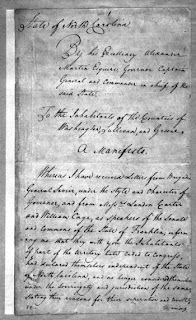 State of North Carolina
By his Excellency Alexander
Martin Esquire Governor Captain
General and Commander in chief of the
said State
To the Inhabitants of the Counties of
Washington, Sullivan, and Greene
A Manifesto.
Whereas I have received letters from Brigadier
General Sevier under the Style and Character of
Governor, and from Messrs Landon Carter
and William Cage, as Speakers of the Senate
and Commons of the State of Franklin, informing
me that they with you the Inhabitants
of part of the territory lately ceded to Congress,
had declared themselves independent of the State
of North Carolina, and no longer considered themselves
under the Sovereignty and jurisdiction of the same
stating their reasons for their separation and revolt